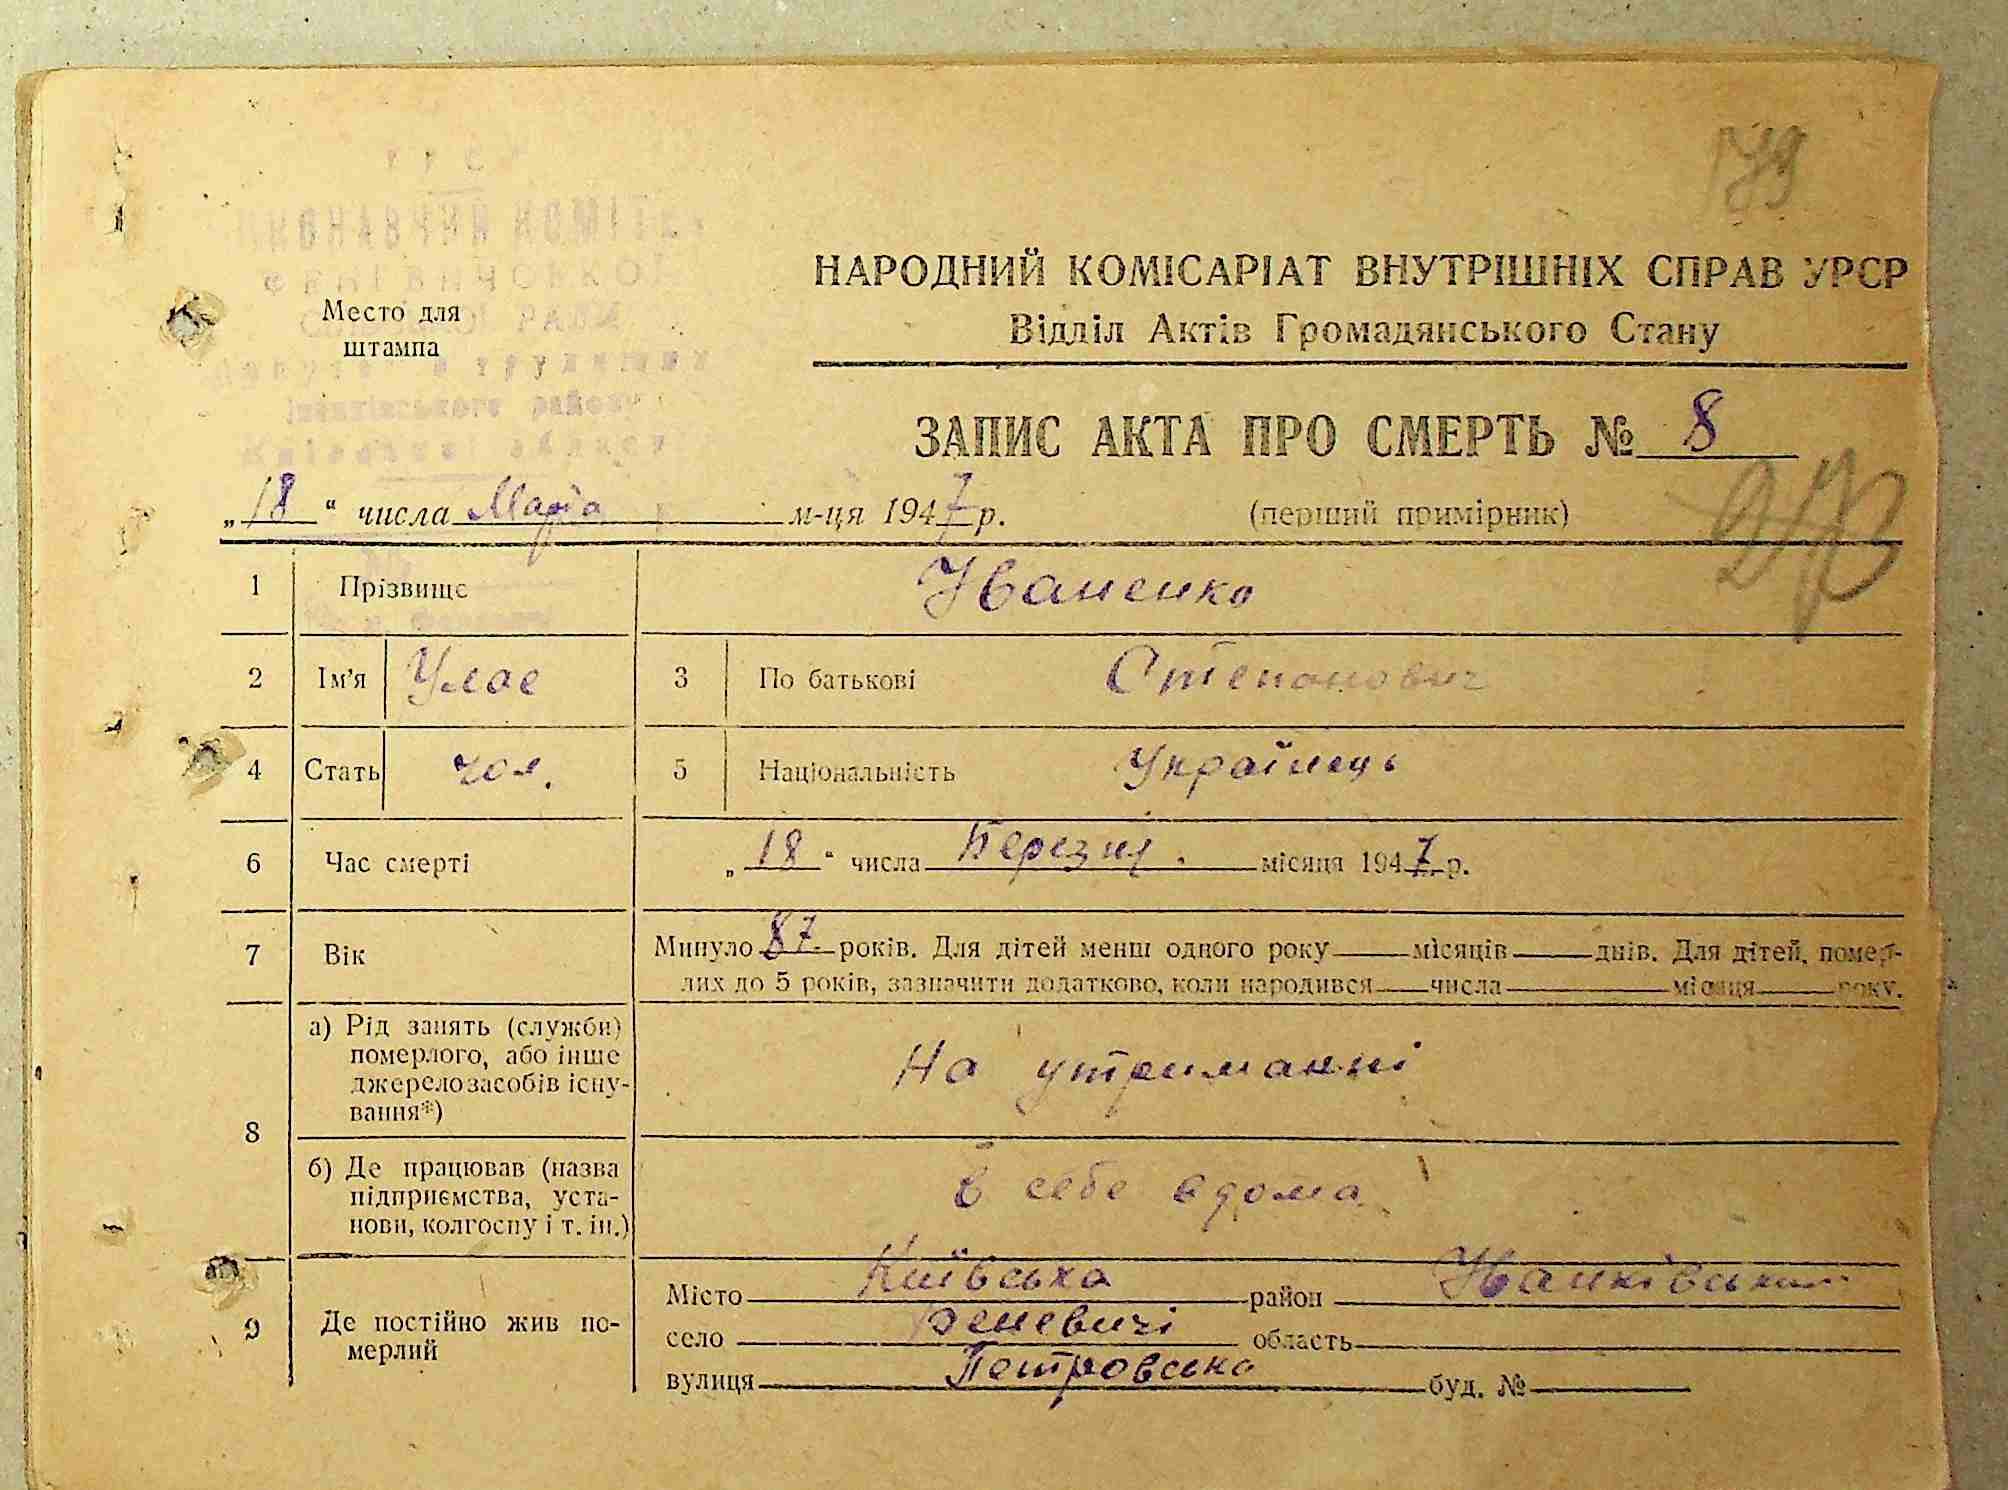 179
НАРОДНИЙ КОМІСАРІАТ ВНУТРІШНІХ СПРАВ УРСР
Відділ Актів Громадянського Стану
Место для
штампа
ФЕНЕВИЧСЬКОЇ
РАДИ
трудящих
району
ЗАПИС АКТА ПРО СМЕРТЬ № 8
„18“ числа Марта м-ця 1947 р. (перший примірник)
1 Прізвище Іваненко
2 Ім'я Улас 3 По батькові Степанович
4 Стать чол. 5 Національність Українець
6 Час смерті „18“ числа Березня. місяця 1947 р.
7 Вік Минуло 87 років. Для дітей менш одного року місяців днів. Для дітей, помер-
лих до 5 років, зазначити додатково, коли народився числа місяця року.
8 а) Рід занять (служби)
померлого, або інше
джерело засобів існу-
вання*)
На утриманні
б) Де працював (назва
підприємства, уста-
нови, колгоспу і т. ін.)
в себе вдома
9 Де постійно жив по-
мерлий
Місто Київська район Іванківський
село Феневичі область
вулиця Петровська буд. №